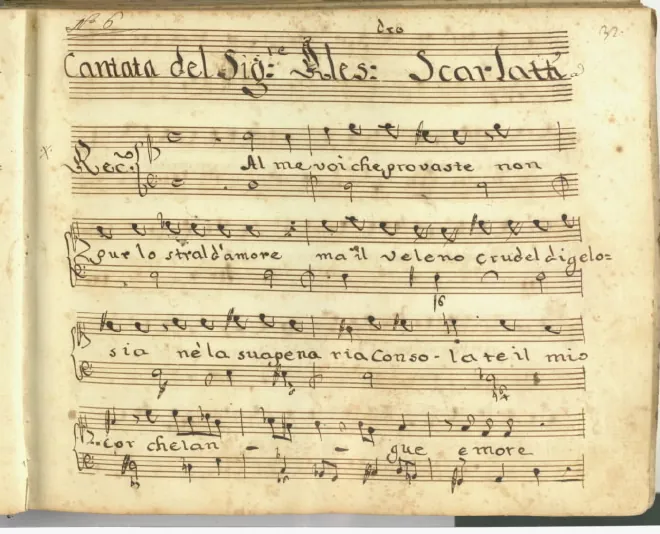 No 6
32.
Cantata del Sig:re Ales:dro Scarlatti
Rec:vo
Al me voi che provaste non
pur lo stral d'amore ma il veleno crudel di gelo=
sia nè la sua pena ria Conso - late il mio
cor che lan - - gue e more